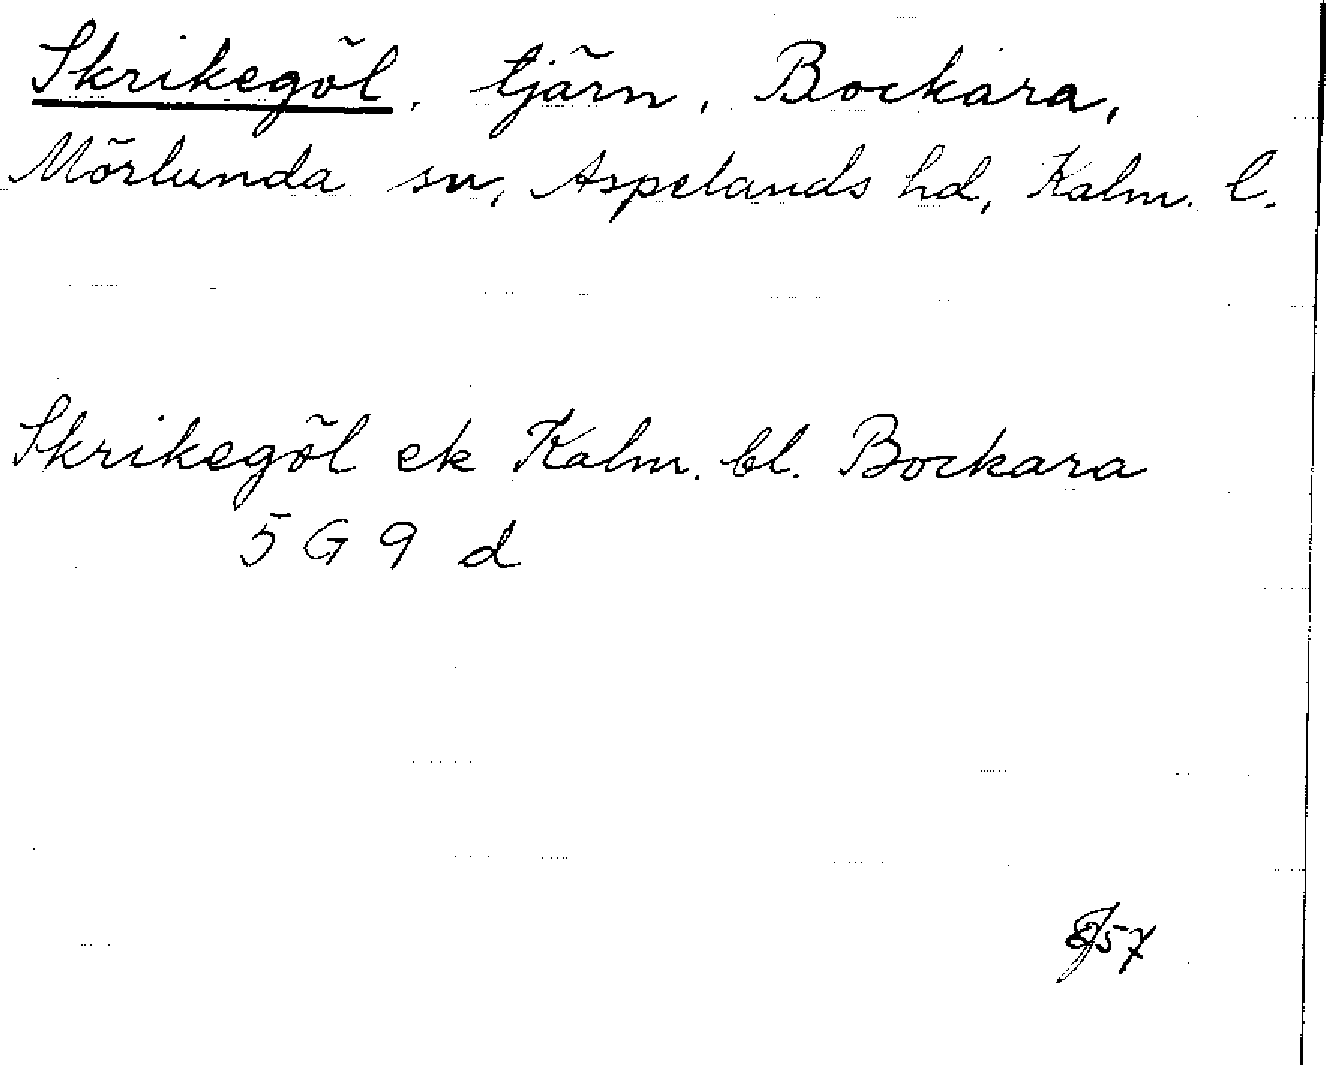 Skrikegöl, tjärn, Bockara,
Mörlunda sn, Aspelands hd, Kalm. l.
Skrikegöl ek Kalm. bl. Bockara
5 G 9 d
57